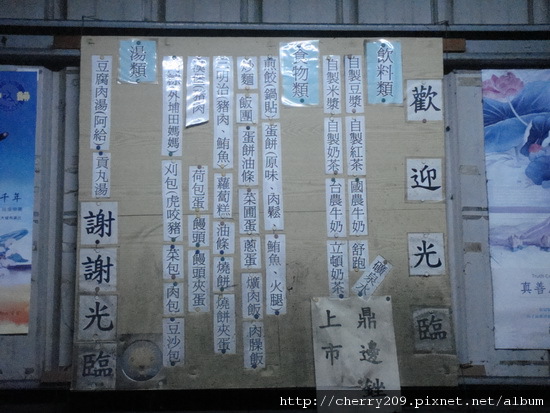 歡迎光臨
飲料類
自製豆漿 自製紅茶 國農牛奶 舒跑
自製米漿 自製奶茶 台農牛奶 立頓奶茶
食物類
煎餃 鍋貼 蛋餅(原味、肉鬆、鮪魚、火腿
飯團 蛋餅油條 菜圃蛋 蔥蛋 爌肉飯 肉臊飯
三明治(豬肉、鮪魚 蘿蔔糕 油條 燒餅 燒餅夾蛋
荷包蛋 饅頭 饅頭夾蛋
刈包(虎咬豬 菜包 肉包 豆沙包
湯類
豆腐肉湯(阿給 貢丸湯
謝謝光臨
鼎邊銼
上市
千年
真善
http://cherry209.pixnet.net/album